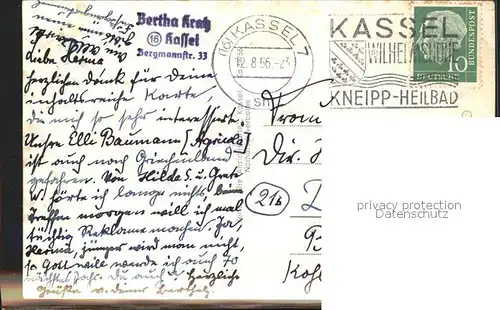 Bertha Kratz
(16) Kassel
Bergmannstr. 33
(16) KASSEL 7
12.8.56.-23
KASSEL
WILHELMSHÖHE
KNEIPP-HEILBAD
DEUTSCHE
BUNDESPOST
10
Liebe Herma
herzlichen Dank für Deine
inhaltreiche Karte,
die mich so sehr interessierte.
Unsre Elli Baumann (Agricola)
ist auch nach Griechenland
gefahren. Von Hilde S. u. Grete
W. hörte ich lange nichts, beim
Treffen morgen will ich mal
tüchtig Reklame machen. Ja,
Herma, jünger wird man nicht,
so Gott will werde ich auch 70
nächstes Jahr, du auch? Herzliche
Grüße v. deiner Berthel.
From
Dir.
(21b)
privacy protection
watermark